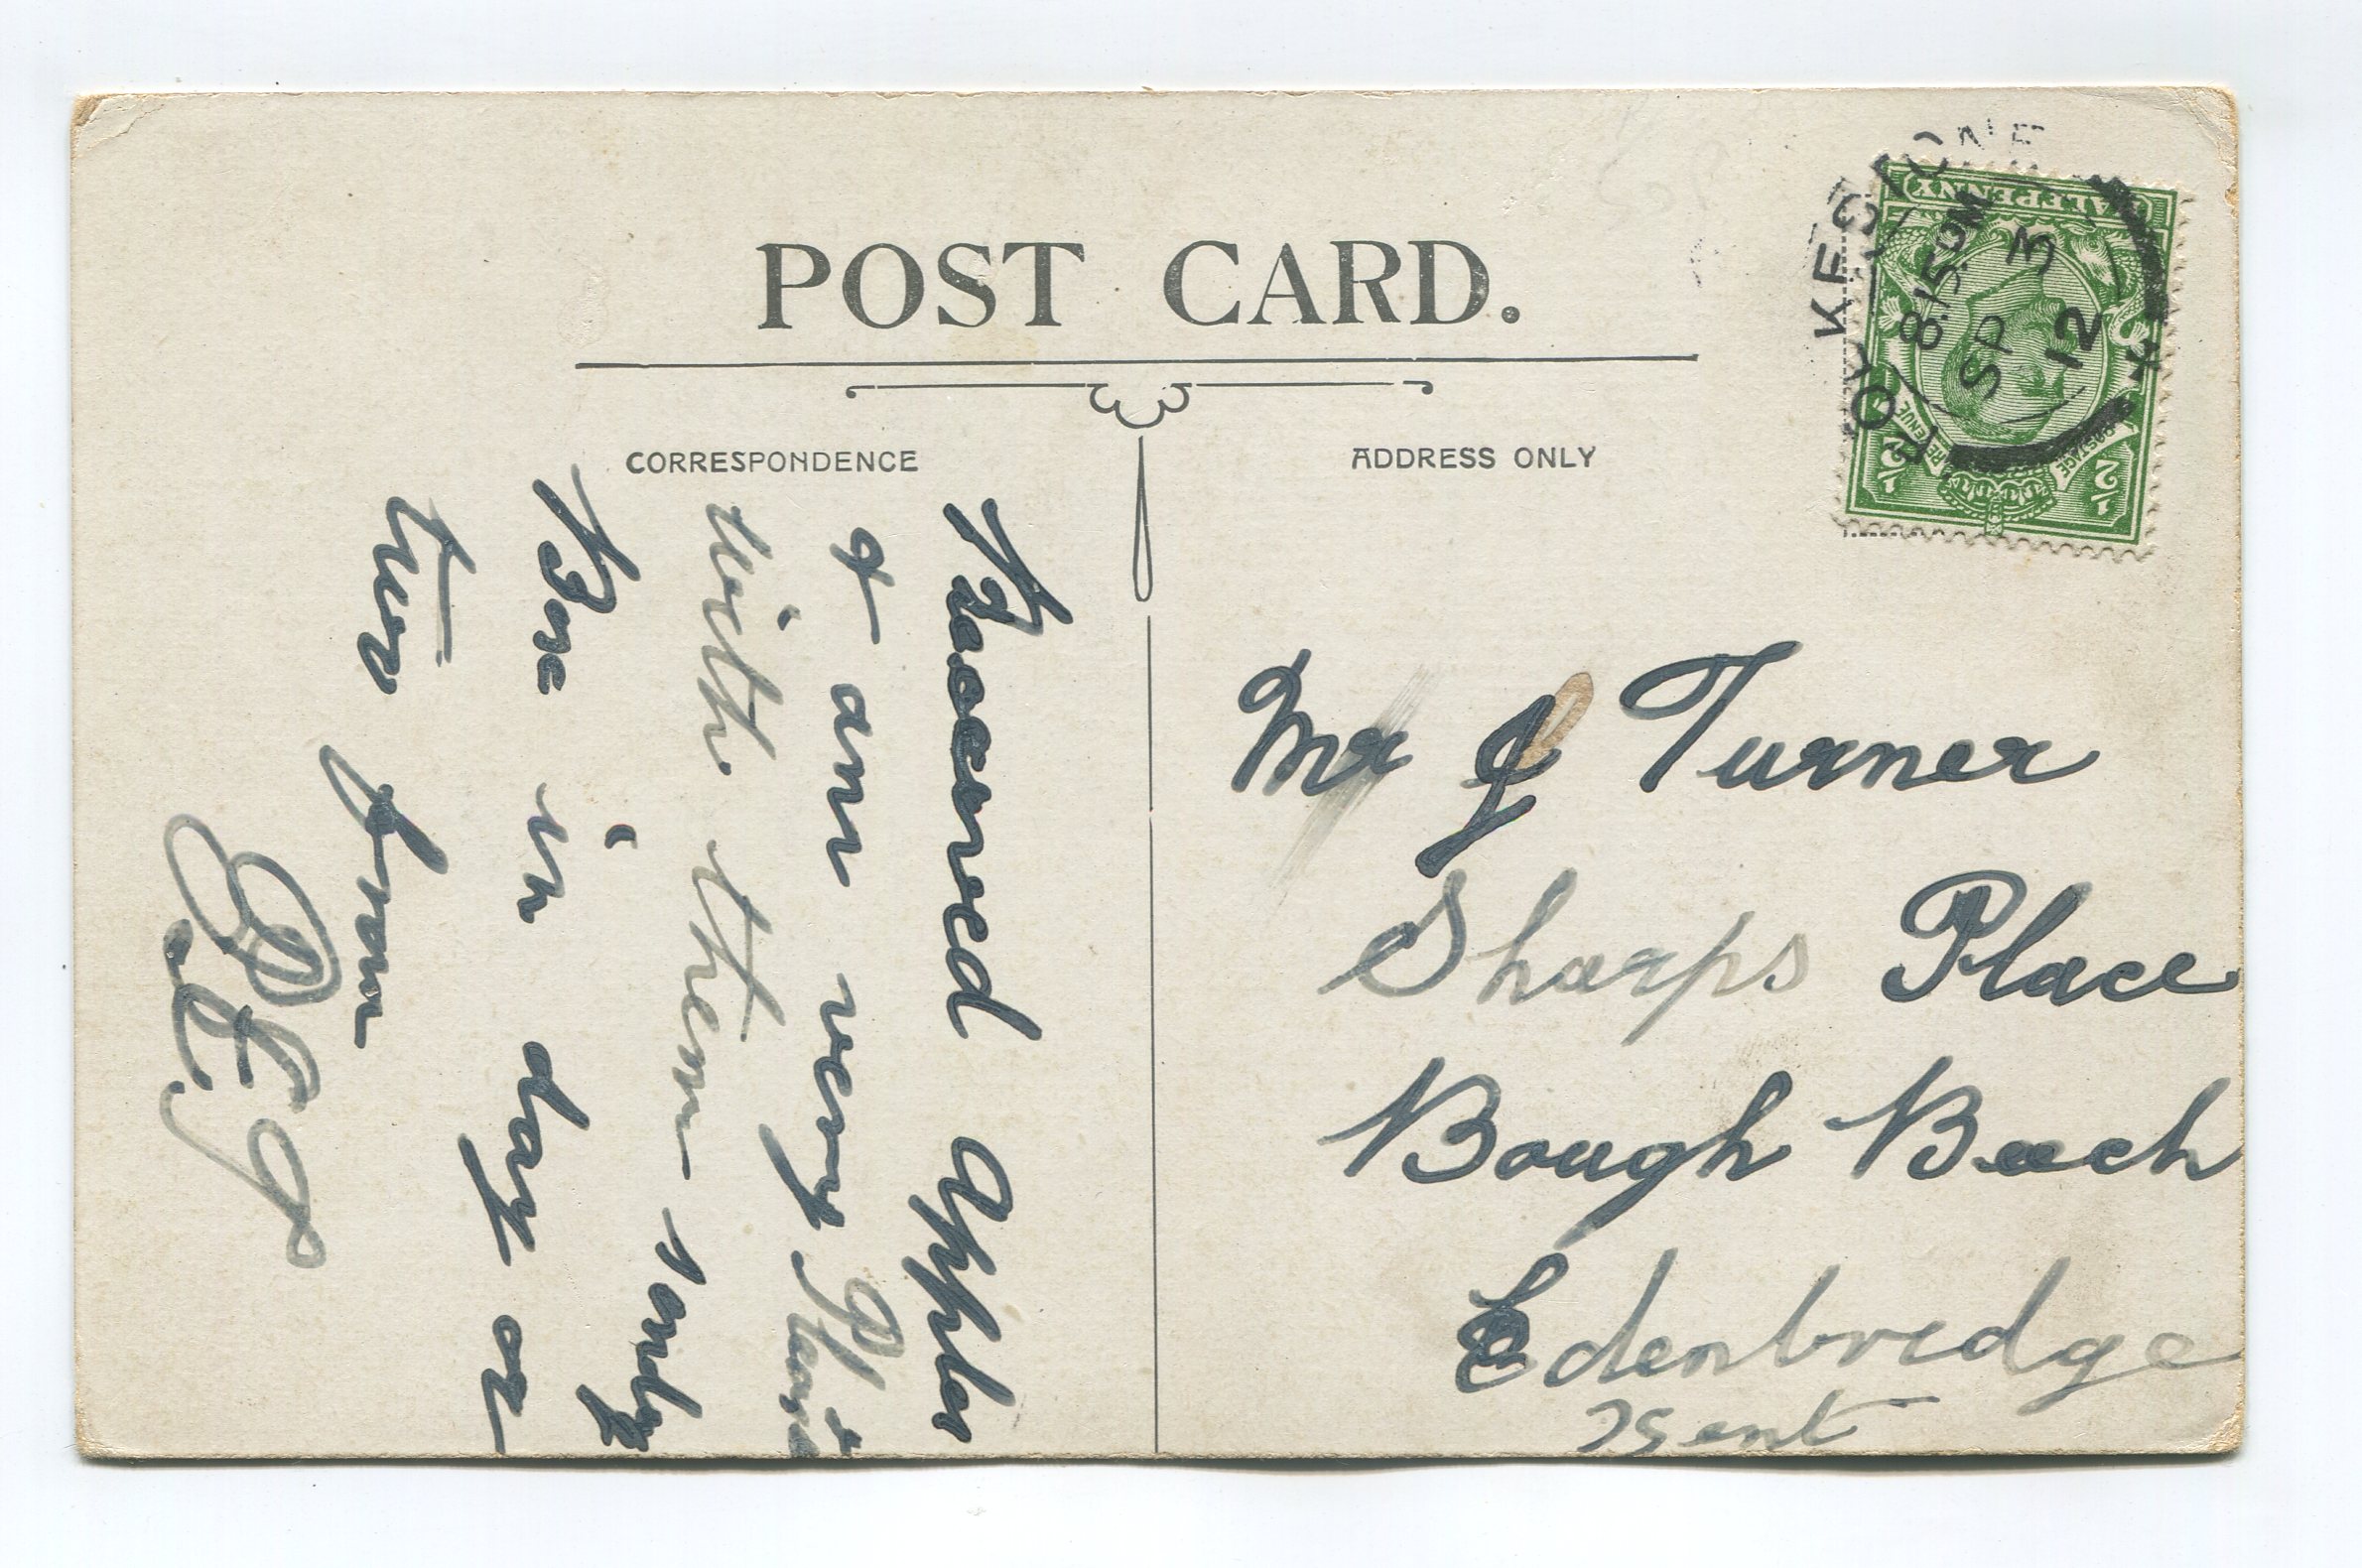 POST CARD.
CORRESPONDENCE
ADDRESS ONLY
FOLKESTONE
8.15 PM
SP 3
12
HALFPENNY
POSTAGE
REVENUE
1/2
1/2
Mr J Turner
Sharps Place
Bough Beech
Edenbridge
Kent
Received Apples
& am very Pleased
with them
Be in day or
two from